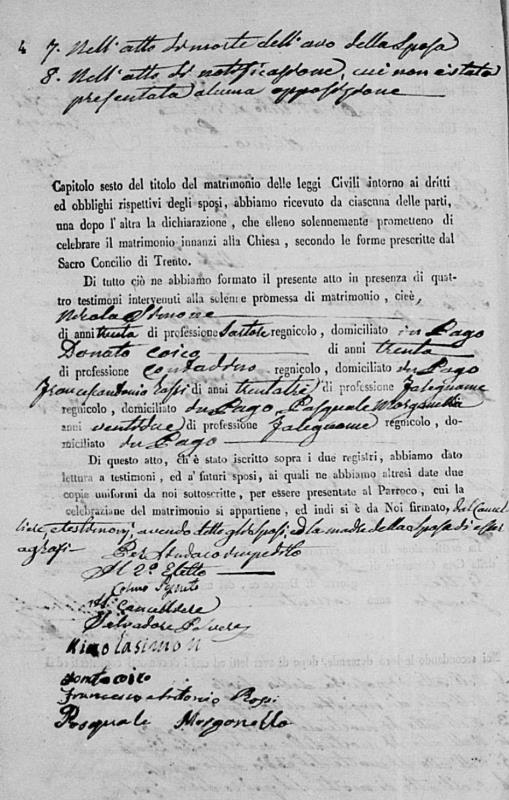 4 7. Nell'atto di morte dell'avo della Sposa
8. Nell'atto di notificazione, cui non è stata
presentata alcuna opposizione
Capitolo sesto del titolo del matrimonio delle leggi Civili intorno ai dritti
ed obblighi rispettivi degli sposi, abbiamo ricevuto da ciascuna delle parti,
una dopo l'altra la dichiarazione, che elleno solennemente promettono di
celebrare il matrimonio innanzi alla Chiesa, secondo le forme prescritte dal
Sacro Concilio di Trento.
Di tutto ciò ne abbiamo formato il presente atto in presenza di quat-
tro testimoni intervenuti alla solenne promessa di matrimonio, cieè,
Nicola Simone
di anni trenta di professione Sartore regnicolo, domiciliato in Pago
Donato Cocco di anni trenta
di professione Contadino regnicolo, domiciliato in Pago
Francescantonio Rossi di anni trentatre di professione Falegname
regnicolo, domiciliato in Pago, Pasquale Morganella
anni ventidue di professione Falegname regnicolo, do-
miciliato in Pago
Di questo atto, ch'è stato iscritto sopra i due registri, abbiamo dato
lettura a testimoni, ed a' futuri sposi, ai quali ne abbiamo altresì date due
copie uniformi da noi sottoscritte, per essere presentate al Parroco, cui la
celebrazione del matrimonio si appartiene, ed indi si è da Noi firmato, dal Cancel-
liere, e testimonj, avendo detto gli Sposi ed la madre della Sposa di esser
Per Sindaco impedito
Il 2° Eletto
Cancelliere
Salvadore
Nicolasimon
Francesco Antonio Rossi
Pasquale Morganella